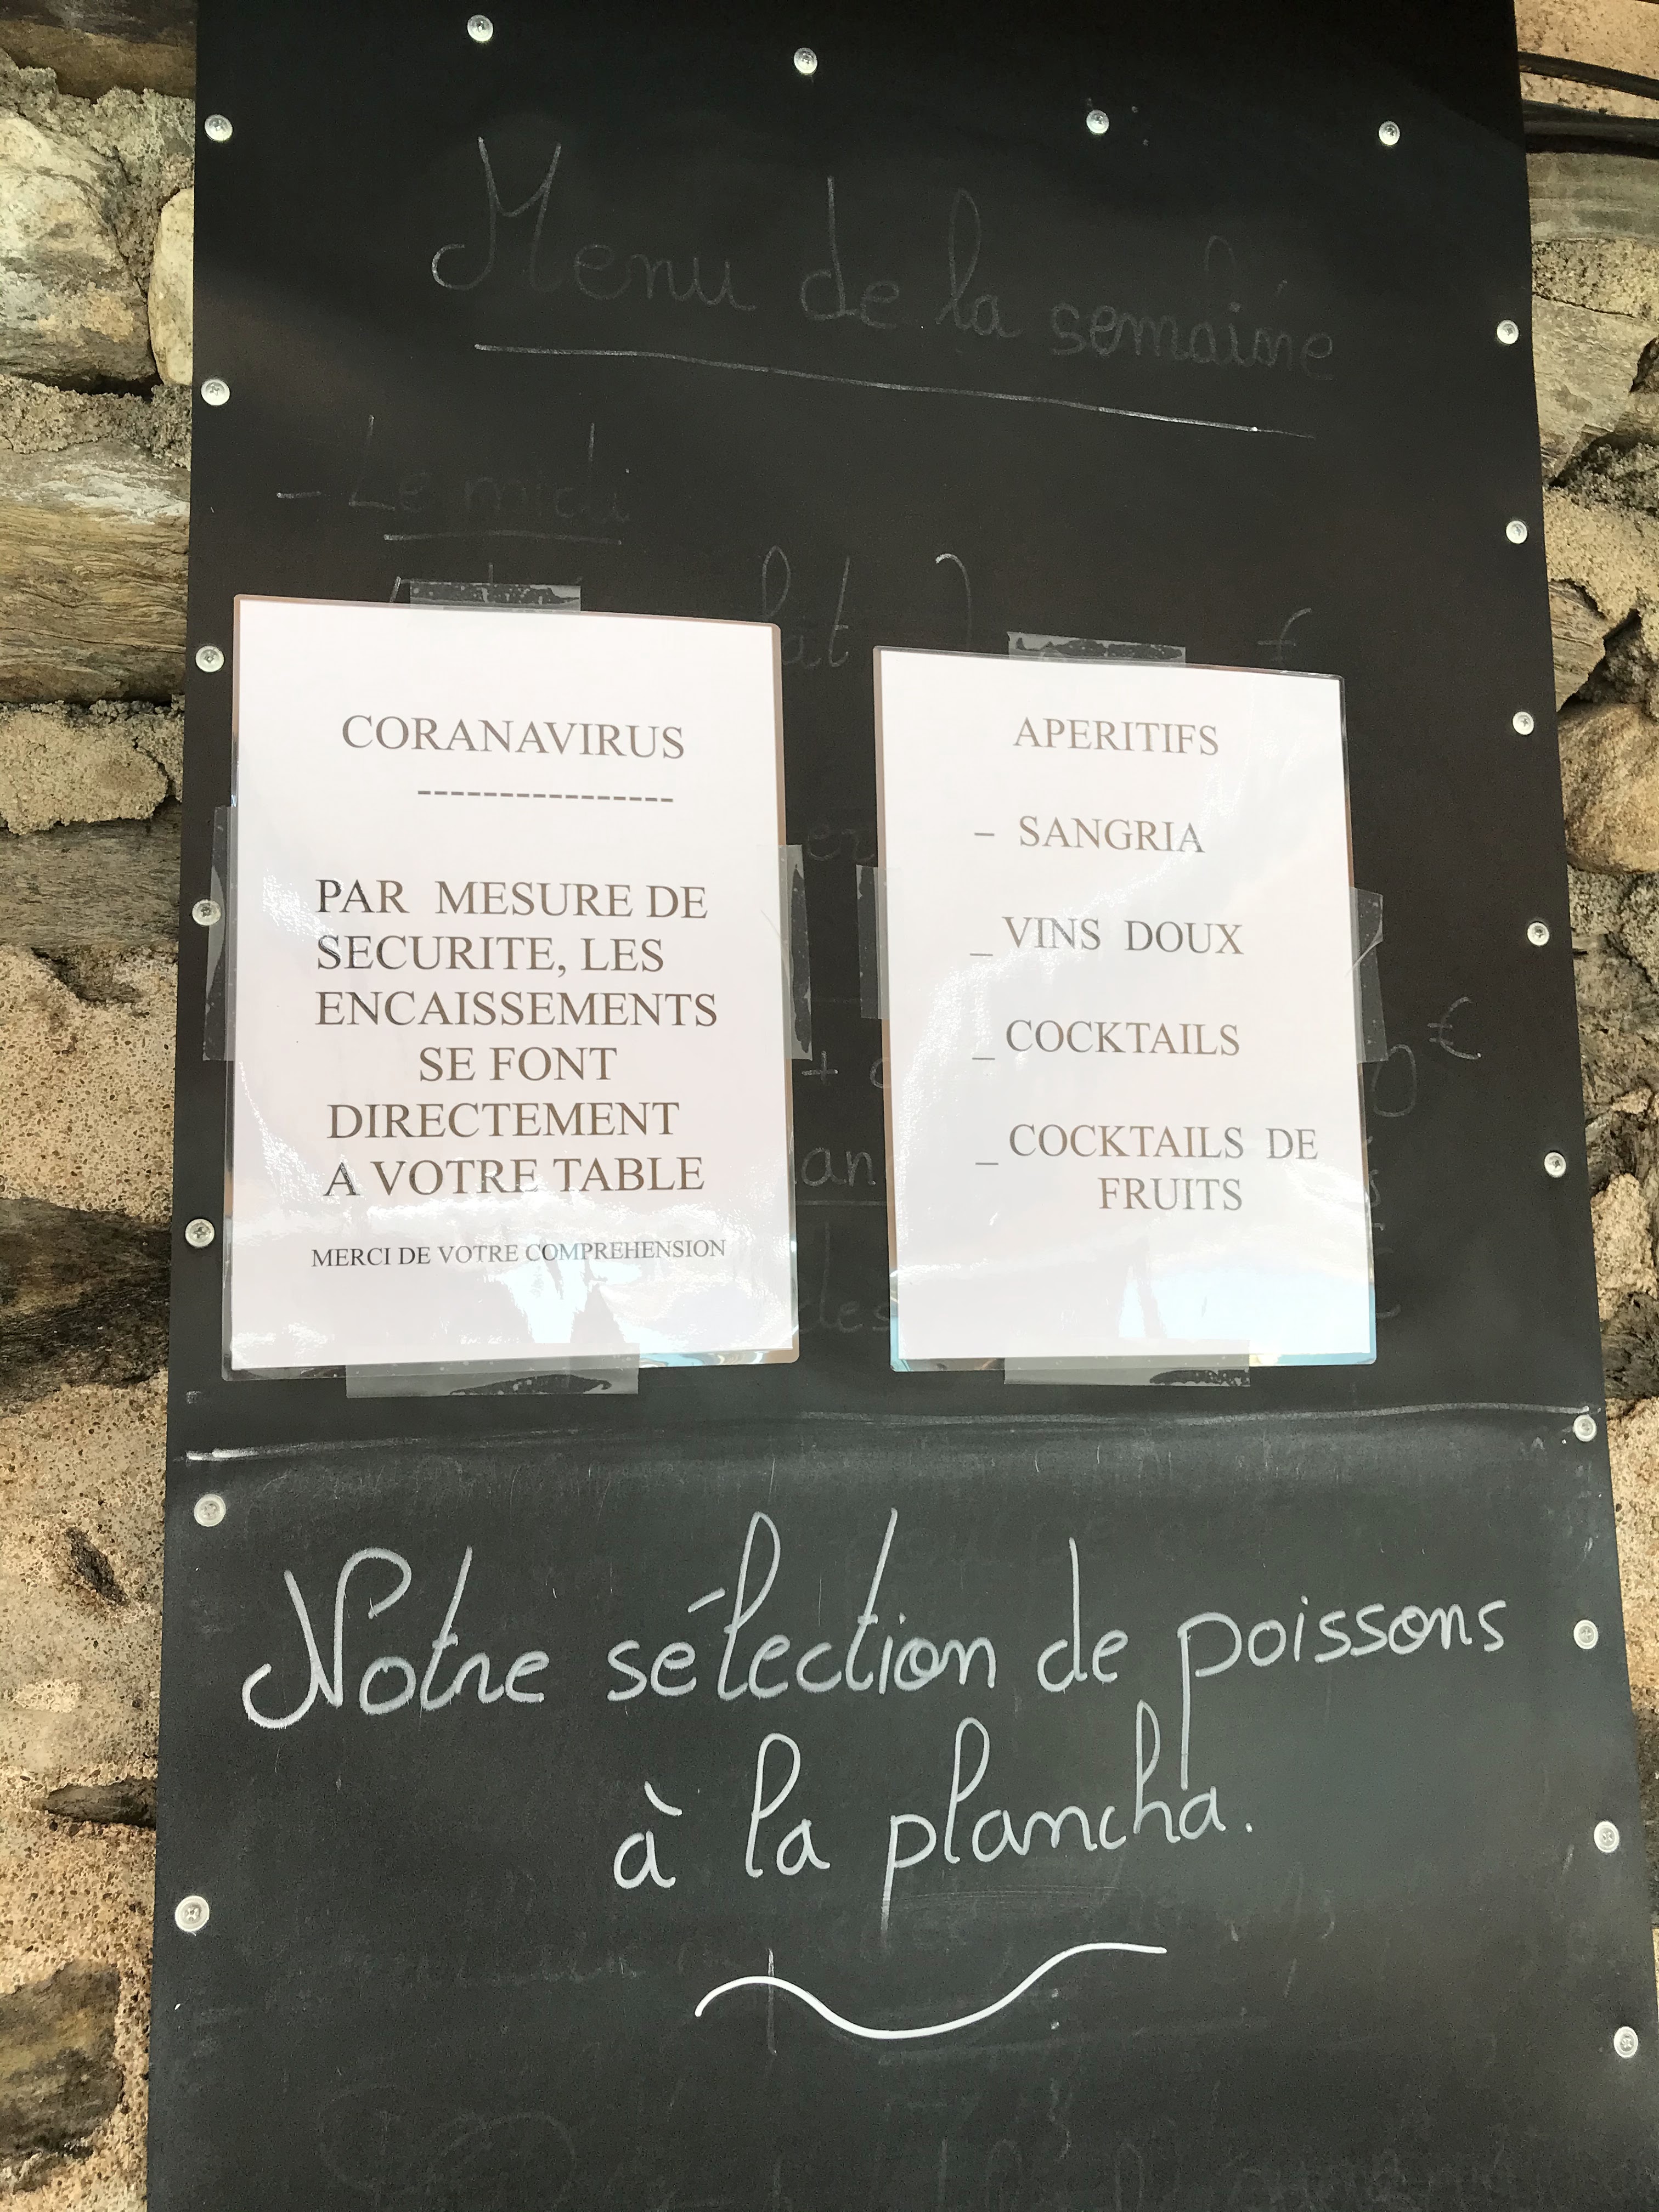 Menu de la semaine
- Le midi
€
CORANAVIRUS
----------------
PAR MESURE DE
SECURITE, LES
ENCAISSEMENTS
SE FONT
DIRECTEMENT
A VOTRE TABLE
MERCI DE VOTRE COMPREHENSION
APERITIFS
- SANGRIA
_ VINS DOUX
_ COCKTAILS
_ COCKTAILS DE
FRUITS
€
Notre sélection de poissons
à la plancha.